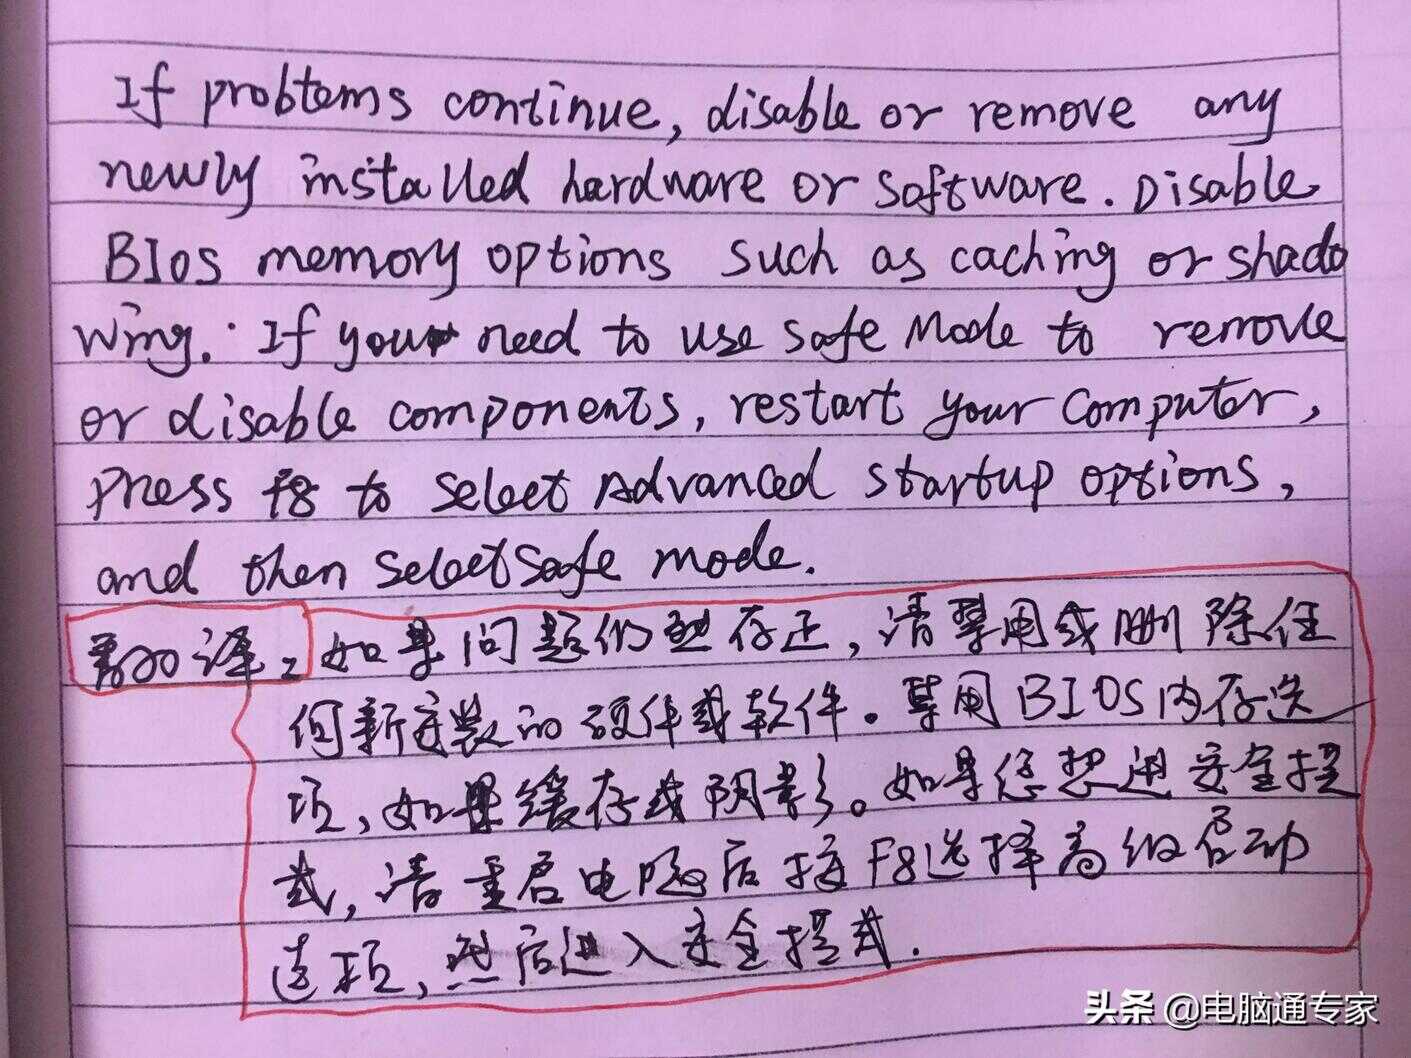 If problems continue, disable or remove any
newly installed hardware or software. Disable
BIOS memory options such as caching or shado
wing. If you need to use safe Mode to remove
or disable components, restart your computer,
press f8 to select Advanced startup options,
and then select safe mode.
翻译: 如果问题仍然存在,请禁用或删除任
何新安装的硬件或软件。禁用BIOS内存选
项,如果缓存或阴影。如果您想进安全模
式,请重启电脑后按F8选择高级启动
选项,然后进入安全模式.
头条 @电脑通专家